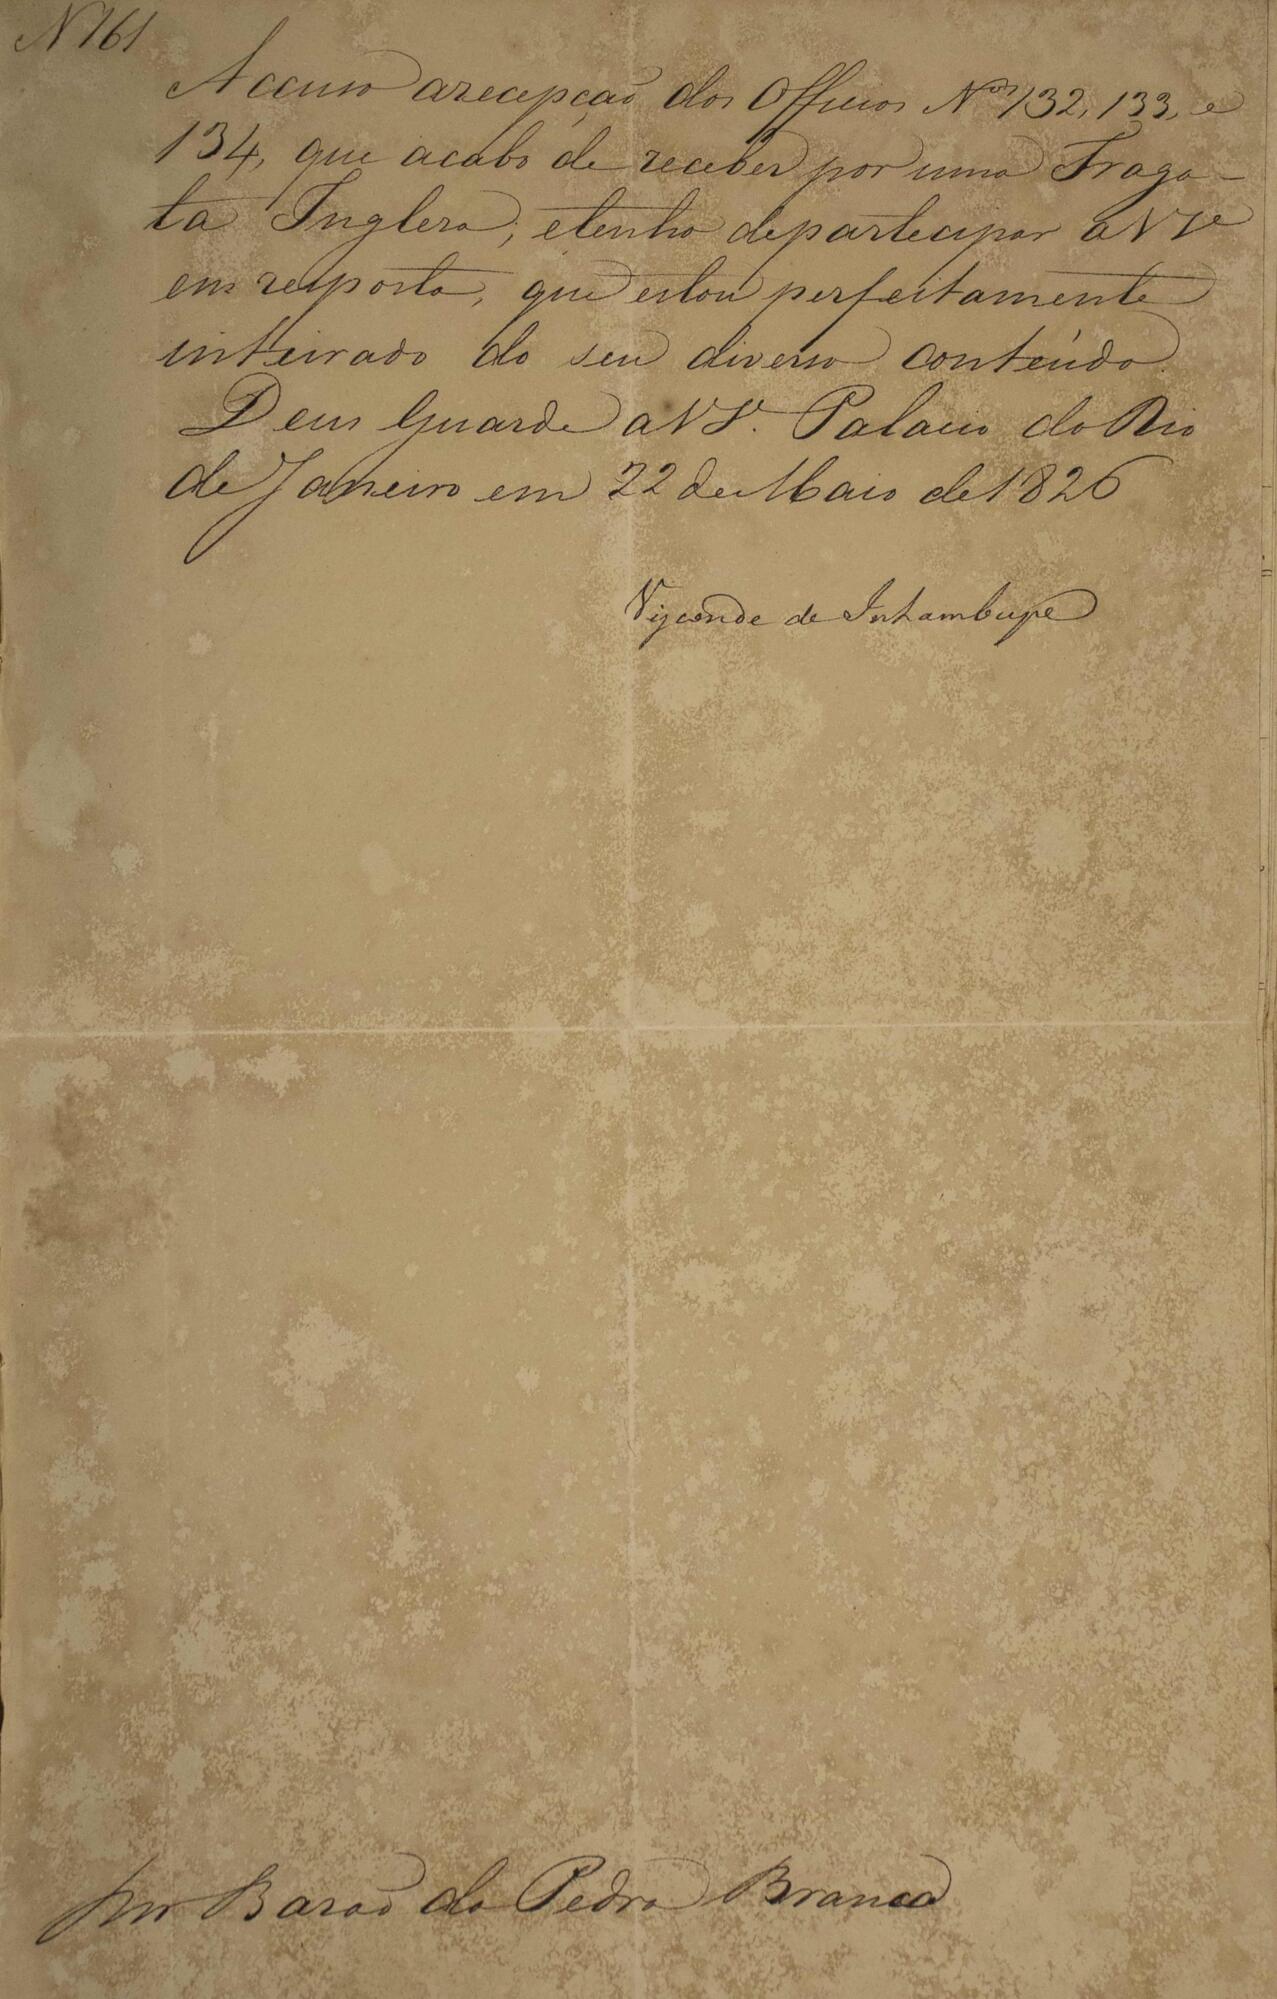 N 161
Accuso a recepção dos Officios Nos 132, 133, e
134, que acabo de receber por uma Fraga-
ta Ingleza, e tenho de partecipar a V Sª
em resposta, que estou perfeitamente
inteirado do seu diverso conteúdo.
Deus Guarde a V Sª. Palacio do Rio
de Janeiro em 22 de Maio de 1826
Visconde de Inhambupe
Snr Barão da Pedra Branca